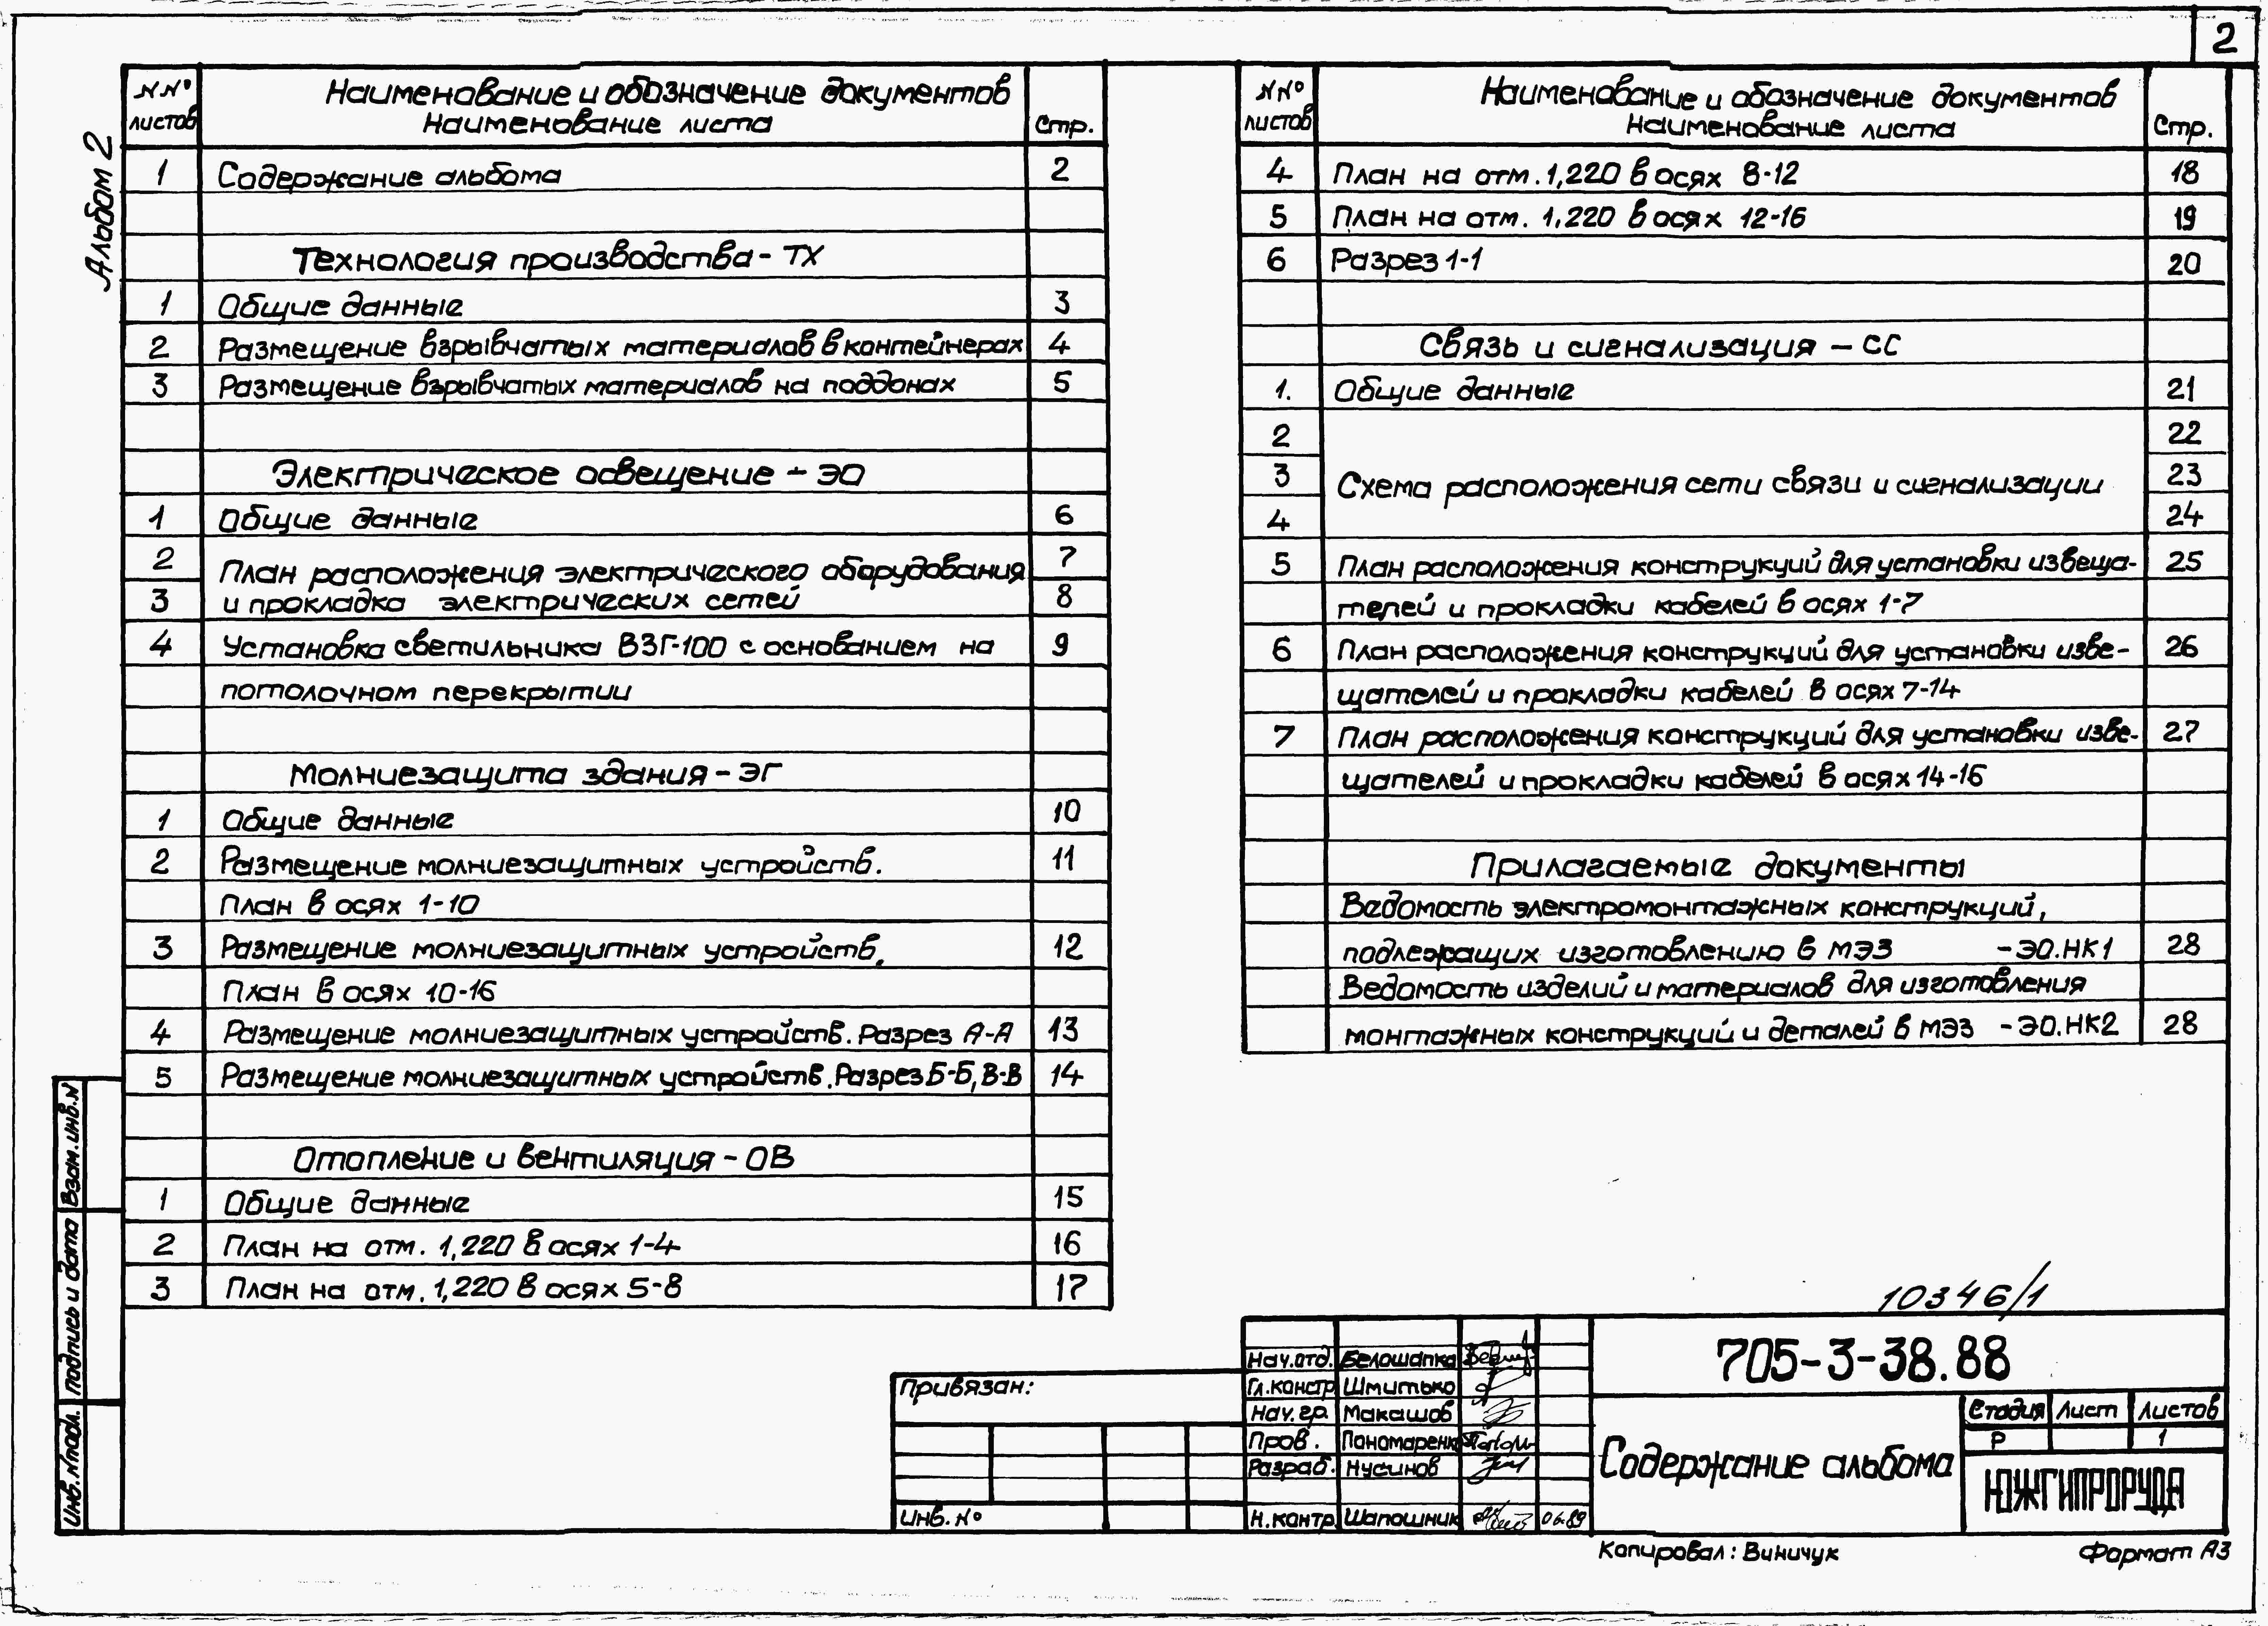 2
Альбом 2
NNº листов
Наименование и обозначение документов
Наименование листа
Стр.
1 Содержание альбома 2
Технология производства - ТХ
1 Общие данные 3
2 Размещение взрывчатых материалов в контейнерах 4
3 Размещение взрывчатых материалов на поддонах 5
Электрическое освещение - ЭО
1 Общие данные 6
2 План расположения электрического оборудования 7
3 и прокладка электрических сетей 8
4 Установка светильника ВЗГ-100 с основанием на 9
потолочном перекрытии
Молниезащита здания - ЭГ
1 Общие данные 10
2 Размещение молниезащитных устройств. 11
План в осях 1-10
3 Размещение молниезащитных устройств. 12
План в осях 10-16
4 Размещение молниезащитных устройств. Разрез А-А 13
5 Размещение молниезащитных устройств. Разрез Б-Б, В-В 14
Отопление и вентиляция - ОВ
1 Общие данные 15
2 План на отм. 1,220 в осях 1-4 16
3 План на отм. 1,220 в осях 5-8 17
NNº листов
Наименование и обозначение документов
Наименование листа
Стр.
4 План на отм. 1,220 в осях 8-12 18
5 План на отм. 1,220 в осях 12-16 19
6 Разрез 1-1 20
Связь и сигнализация - СС
1. Общие данные 21
2 22
3 Схема расположения сети связи и сигнализации 23
4 24
5 План расположения конструкций для установки извеща- 25
телей и прокладки кабелей в осях 1-7
6 План расположения конструкций для установки изве- 26
щателей и прокладки кабелей в осях 7-14
7 План расположения конструкций для установки изве- 27
щателей и прокладки кабелей в осях 14-16
Прилагаемые документы
Ведомость электромонтажных конструкций,
подлежащих изготовлению в МЭЗ -ЭО.НК1 28
Ведомость изделий и материалов для изготовления
монтажных конструкций и деталей в МЭЗ -ЭО.НК2 28
Взам. инв. N
Подпись и дата
Инв. N подл.
10346/1
Привязан:
Инв. Nº
Нач. отд. Белошапка
Гл. констр Шмитько
Нач. гр. Макашов
Пров. Пономаренк
Разраб. Нусинов
Н. контр. Шапошник 06.89
705-3-38.88
Содержание альбома
Стадия Лист Листов
Р 1
ЮЖГИПРОРУДА
Копировал: Виничук
Формат А3